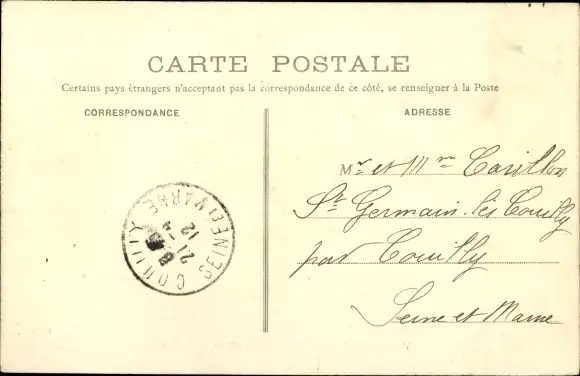 CARTE POSTALE
Certains pays étrangers n'acceptant pas la correspondance de ce côté, se renseigner à la Poste
CORRESPONDANCE
ADRESSE
Mr et Mme Carillon
St Germain lès Couilly
par Couilly
Seine et Marne
COUILLY SEINE ET MARNE
21 - 4
12